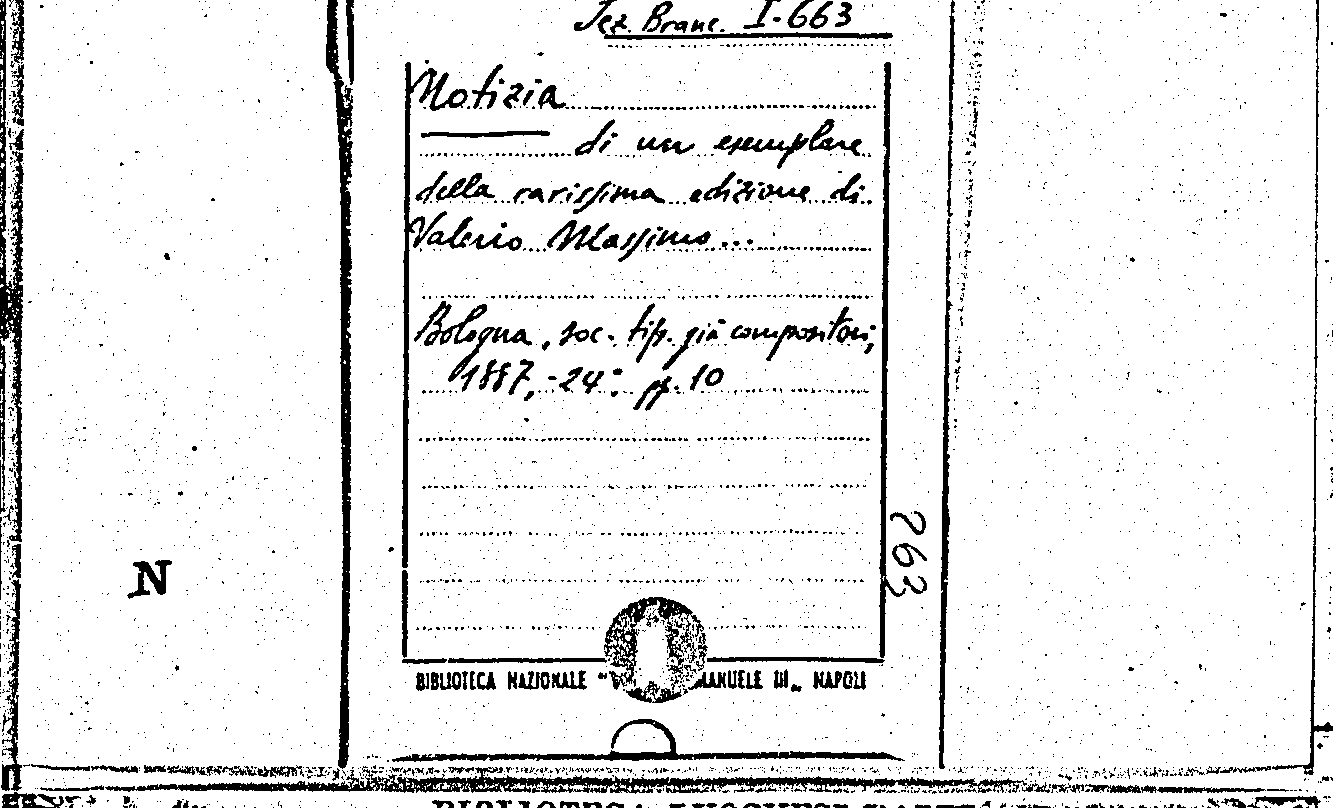 Sez. Branc. I-663
Notizia
di un esemplare
della rarissima edizione di
Valerio Massimo...
Bologna, soc. tip. già compositori,
1887,-24°. pp. 10
263
N
BIBLIOTECA NAZIONALE "V MANUELE III„ NAPOLI